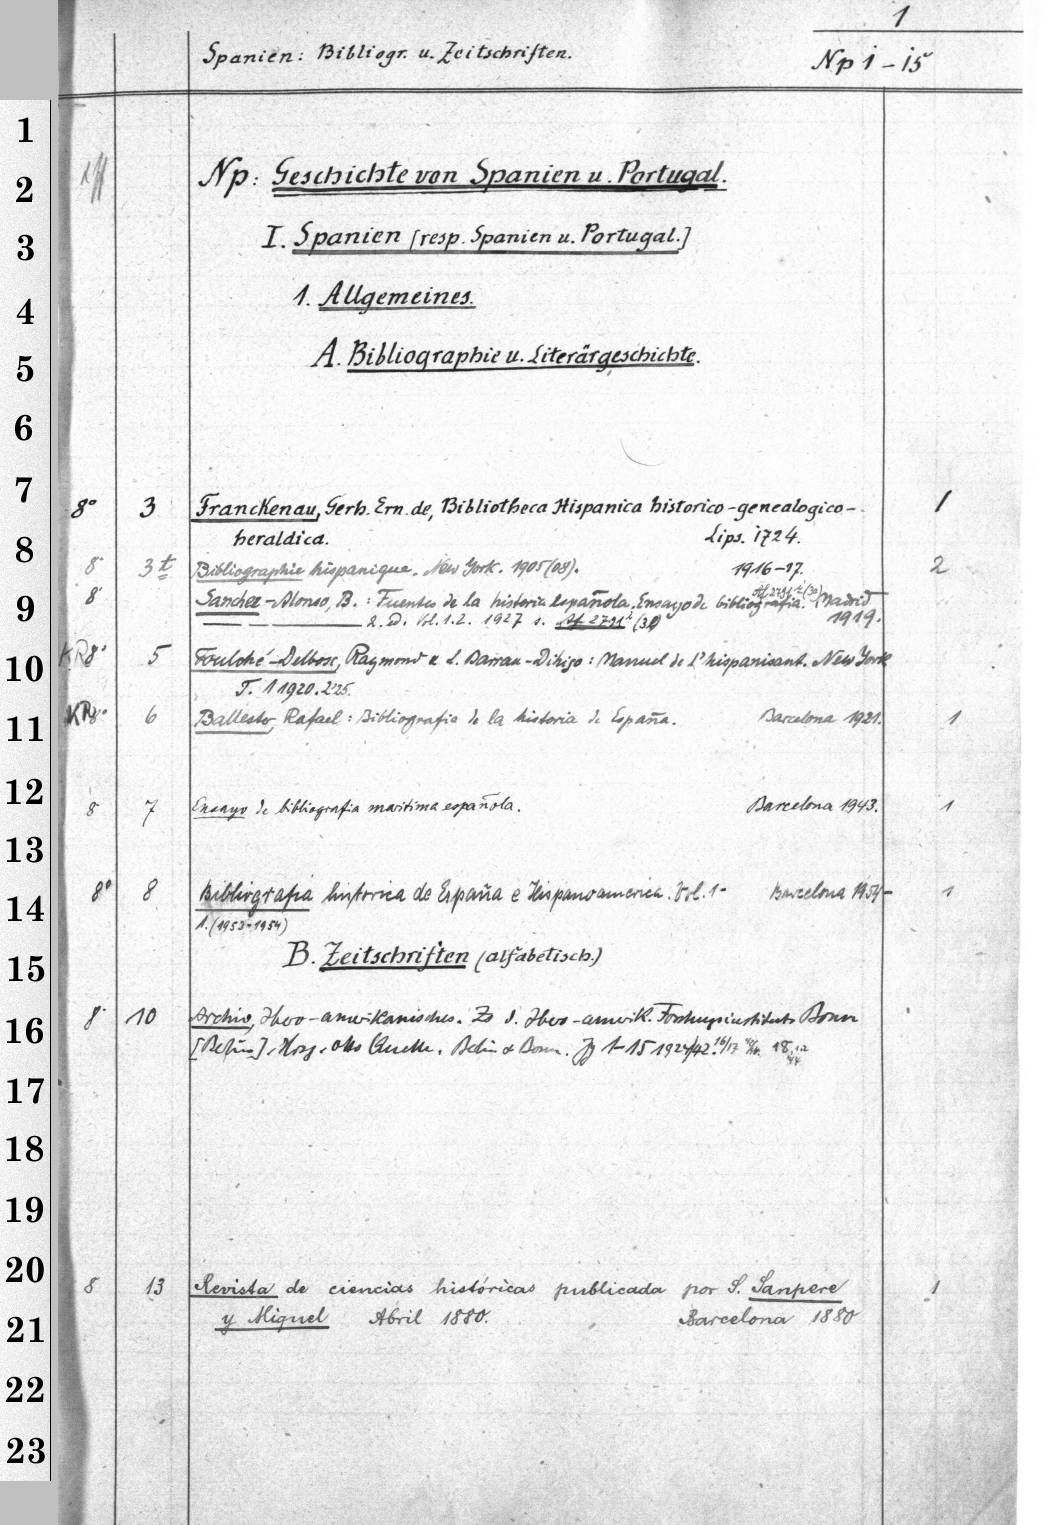 1
Spanien: Bibliogr. u. Zeitschriften.
Np 1 - 15
1
2
Np: Geschichte von Spanien u. Portugal.
3
I. Spanien [resp. Spanien u. Portugal.]
4
1. Allgemeines.
5
A. Bibliographie u. Literärgeschichte.
6
7
8° 3 Franckenau, Gerh. Ern. de, Bibliotheca Hispanica historico-genealogico- 1
8
heraldica. Lips. 1724.
8° 3t Bibliographie hispanique. New York. 1905(08). 1916-17. 2
9
8° Sanchez-Alonso, B.: Fuentes de la historia española. Ensayo de bibliografia. Madrid
2. Ed. Vol. 1.2. 1927 s. Af 2791 (30) 1919.
10
KR8° 5 Foulché-Delbosc, Raymond u L. Barrau-Dihigo: Manuel de l'hispanisant. New York
T. 1 1920. 2 25.
11
KR8° 6 Ballester, Rafael: Bibliografia de la historia de España. Barcelona 1921. 1
12
8 7 Ensayo de bibliografia maritima española. Barcelona 1943. 1
13
14
8° 8 Bibliografia historica de España e Hispanoamerica. Vol. 1- Barcelona 1954- 1
1. (1953-1954)
15
B. Zeitschriften (alfabetisch.)
16
8° 10 Archiv, Ibero-amerikanisches. Zs d. Ibero-amerik. Forschungsinstituts Bonn
[Berlin]. Hrsg. Otto Quelle. Berlin & Bonn. Jg 1-15 1924/42. 16/17
17
18
19
20
8 13 Revista de ciencias históricas publicada por S. Sanpere 1
21
y Miquel Abril 1880. Barcelona 1880
22
23